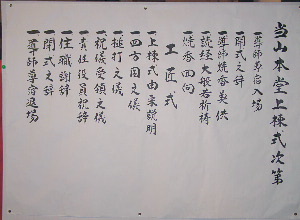 当山本堂上棟式次第
一、導師尊宿入場
一、開式之辞
一、導師焼香奠供
一、読経大般若祈祷
一、焼香回向
工匠式
一、上棟式由来説明
一、四方固之儀
一、槌打之儀
一、祝儀受領之儀
一、責任役員祝辞
一、住職謝辞
一、閉式之辞
一、導師尊宿退場